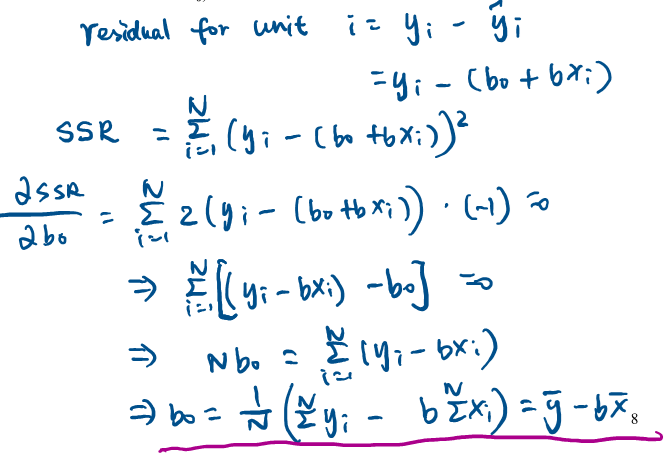 residual for unit i = yᵢ - ŷᵢ
= yᵢ - (b₀ + bxᵢ)
SSR = Σᵢ₌₁ᴺ (yᵢ - (b₀ + bxᵢ))²
∂SSR/∂b₀ = Σᵢ₌₁ᴺ 2(yᵢ - (b₀ + bxᵢ)) · (-1) = 0
⇒ Σᵢ₌₁ᴺ [(yᵢ - bxᵢ) - b₀] = 0
⇒ Nb₀ = Σᵢ₌₁ᴺ (yᵢ - bxᵢ)
⇒ b₀ = 1/N (Σᴺ yᵢ - b Σᴺ xᵢ) = ȳ - bx̄
8